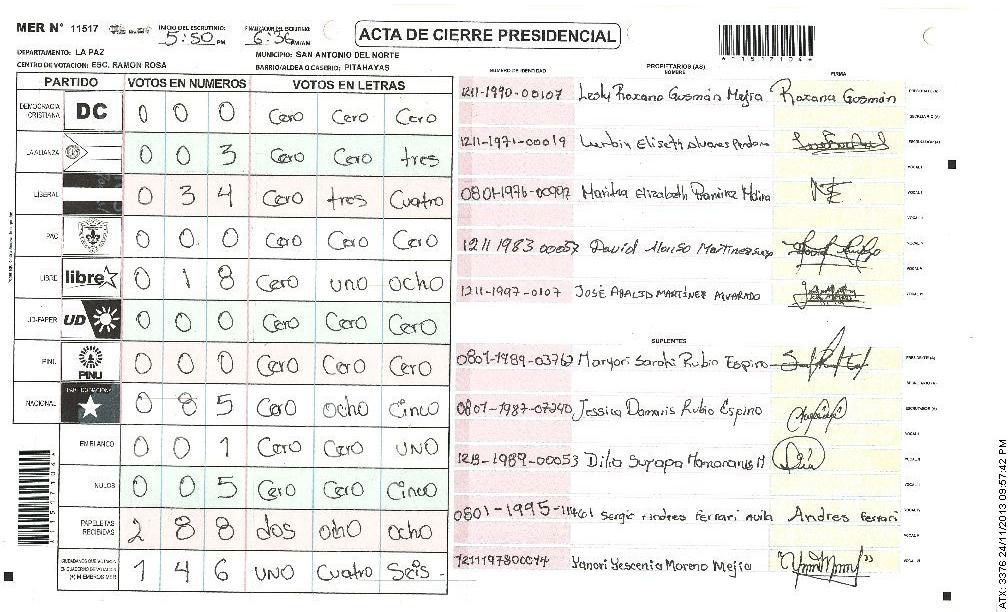 MER N° 11517 INICIO DEL ESCRUTINIO: 5:50 PM FINALIZACION DEL ESCRUTINIO: 6:36 PM/AM
ACTA DE CIERRE PRESIDENCIAL
*11517104*
DEPARTAMENTO: LA PAZ MUNICIPIO: SAN ANTONIO DEL NORTE
CENTRO DE VOTACION: ESC. RAMON ROSA BARRIO/ALDEA O CASERIO: PITAHAYAS
PARTIDO VOTOS EN NUMEROS VOTOS EN LETRAS
DEMOCRACIA CRISTIANA DC 0 0 0 Cero Cero Cero
LA ALIANZA 0 0 3 Cero Cero tres
LIBERAL 0 3 4 Cero tres Cuatro
PAC 0 0 0 Cero Cero Cero
LIBRE libre 0 1 8 Cero uno ocho
UD-FAPER UD 0 0 0 Cero Cero Cero
PINU PINU 0 0 0 Cero Cero Cero
NACIONAL 0 8 5 Cero ocho Cinco
EN BLANCO 0 0 1 Cero Cero UNO
NULOS 0 0 5 Cero Cero Cinco
PAPELETAS RECIBIDAS 2 8 8 dos ocho ocho
1 4 6 UNO Cuatro Seis
NUMERO DE IDENTIDAD PROPIETARIOS (AS) NOMBRE FIRMA
1211-1990-00107 Lesly Roxana Gusmán Mejia Roxana Gusmán
1211-1971-00019
0801-1976-00992 Maritza Elizabeth Ramirez
1211 1983 00057 David Alonso Martinez
1211-1997-0107 JOSÉ ABALID MARTINEZ ALVARADO
SUPLENTES
0801-1989-03762 Maryori Sarahi Rubio Espino
0801-1987-07240 Jessica Damaris Rubio Espino
1213-1989-00053 Dilia Suyapa
0801-1995- Sergio Andres Ferrari Avila Andres Ferrari
Yanori Yescenia Moreno Mejia
ATX: 3376 24/11/2013 09:57:42 PM